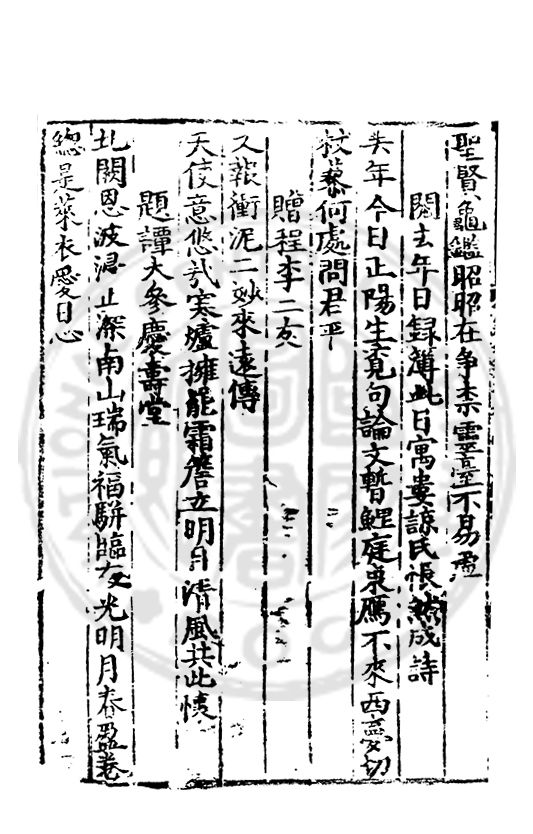 聖賢龜鑑昭昭在争柰靈臺不易虛
閱去年日録薄此日寓婁諒氏悵然成詩
去年今日正陽生覔句論文暫鯉庭東鴈不來西夢切
杖藜何處問君平
贈程李二友
又報衝泥二妙來遠傳
天使意悠哉寒爐擁罷霜簷立明月清風共此懐
題譚大參慶壽堂
北闕恩波浸止深南山瑞氣福駢臨文光明月春盈卷
緫是萊衣愛日心